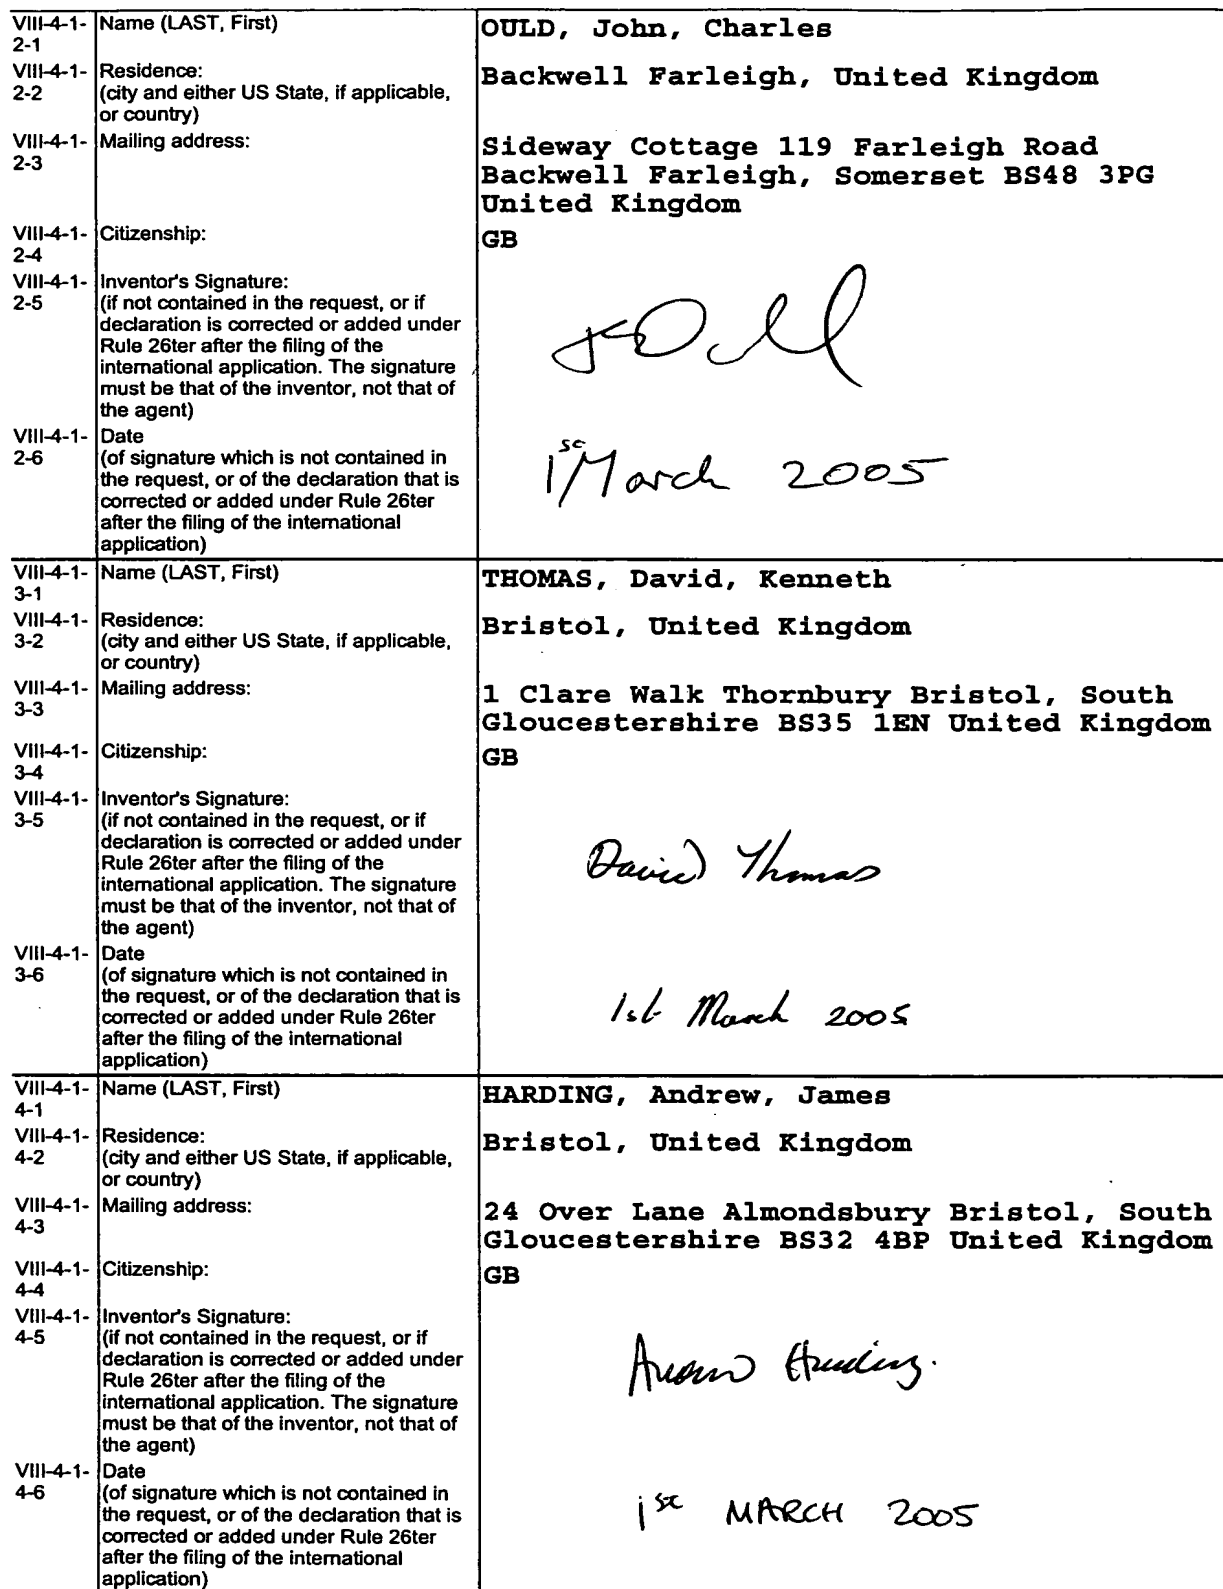 VIII-4-1- Name (LAST, First) OULD, John, Charles
2-1
VIII-4-1- Residence: Backwell Farleigh, United Kingdom
2-2 (city and either US State, if applicable,
or country)
VIII-4-1- Mailing address: Sideway Cottage 119 Farleigh Road
2-3 Backwell Farleigh, Somerset BS48 3PG
United Kingdom
VIII-4-1- Citizenship: GB
2-4
VIII-4-1- Inventor's Signature:
2-5 (if not contained in the request, or if
declaration is corrected or added under
Rule 26ter after the filing of the
international application. The signature
must be that of the inventor, not that of
the agent)
VIII-4-1- Date
2-6 (of signature which is not contained in 1st March 2005
the request, or of the declaration that is
corrected or added under Rule 26ter
after the filing of the international
application)
VIII-4-1- Name (LAST, First) THOMAS, David, Kenneth
3-1
VIII-4-1- Residence: Bristol, United Kingdom
3-2 (city and either US State, if applicable,
or country)
VIII-4-1- Mailing address: 1 Clare Walk Thornbury Bristol, South
3-3 Gloucestershire BS35 1EN United Kingdom
VIII-4-1- Citizenship: GB
3-4
VIII-4-1- Inventor's Signature:
3-5 (if not contained in the request, or if
declaration is corrected or added under
Rule 26ter after the filing of the David Thomas
international application. The signature
must be that of the inventor, not that of
the agent)
VIII-4-1- Date
3-6 (of signature which is not contained in
the request, or of the declaration that is
corrected or added under Rule 26ter 1st March 2005
after the filing of the international
application)
VIII-4-1- Name (LAST, First) HARDING, Andrew, James
4-1
VIII-4-1- Residence: Bristol, United Kingdom
4-2 (city and either US State, if applicable,
or country)
VIII-4-1- Mailing address: 24 Over Lane Almondsbury Bristol, South
4-3 Gloucestershire BS32 4BP United Kingdom
VIII-4-1- Citizenship: GB
4-4
VIII-4-1- Inventor's Signature:
4-5 (if not contained in the request, or if
declaration is corrected or added under
Rule 26ter after the filing of the Andrew Harding.
international application. The signature
must be that of the inventor, not that of
the agent)
VIII-4-1- Date
4-6 (of signature which is not contained in
the request, or of the declaration that is 1st MARCH 2005
corrected or added under Rule 26ter
after the filing of the international
application)